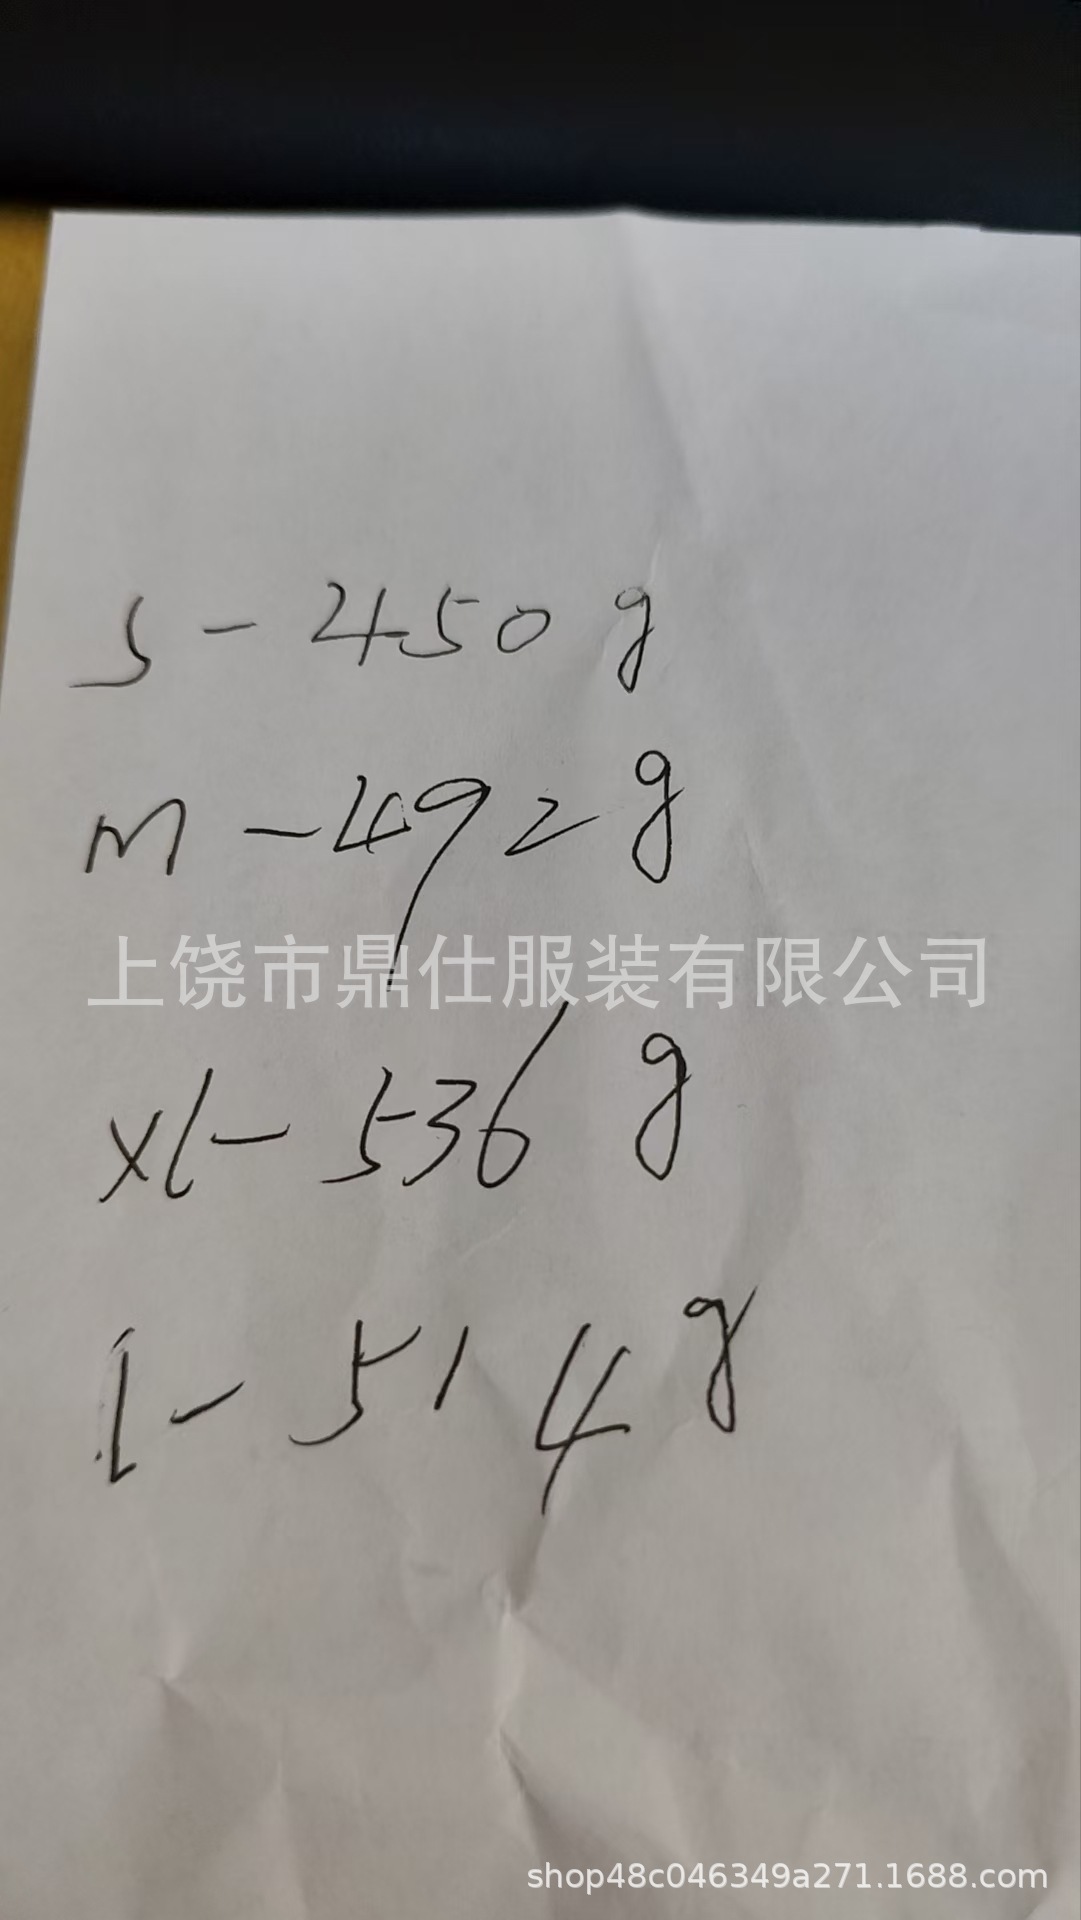 S - 450 g
m - 492 g
上饶市鼎仕服装有限公司
xl - 536 g
l - 514 g
shop48c046349a271.1688.com